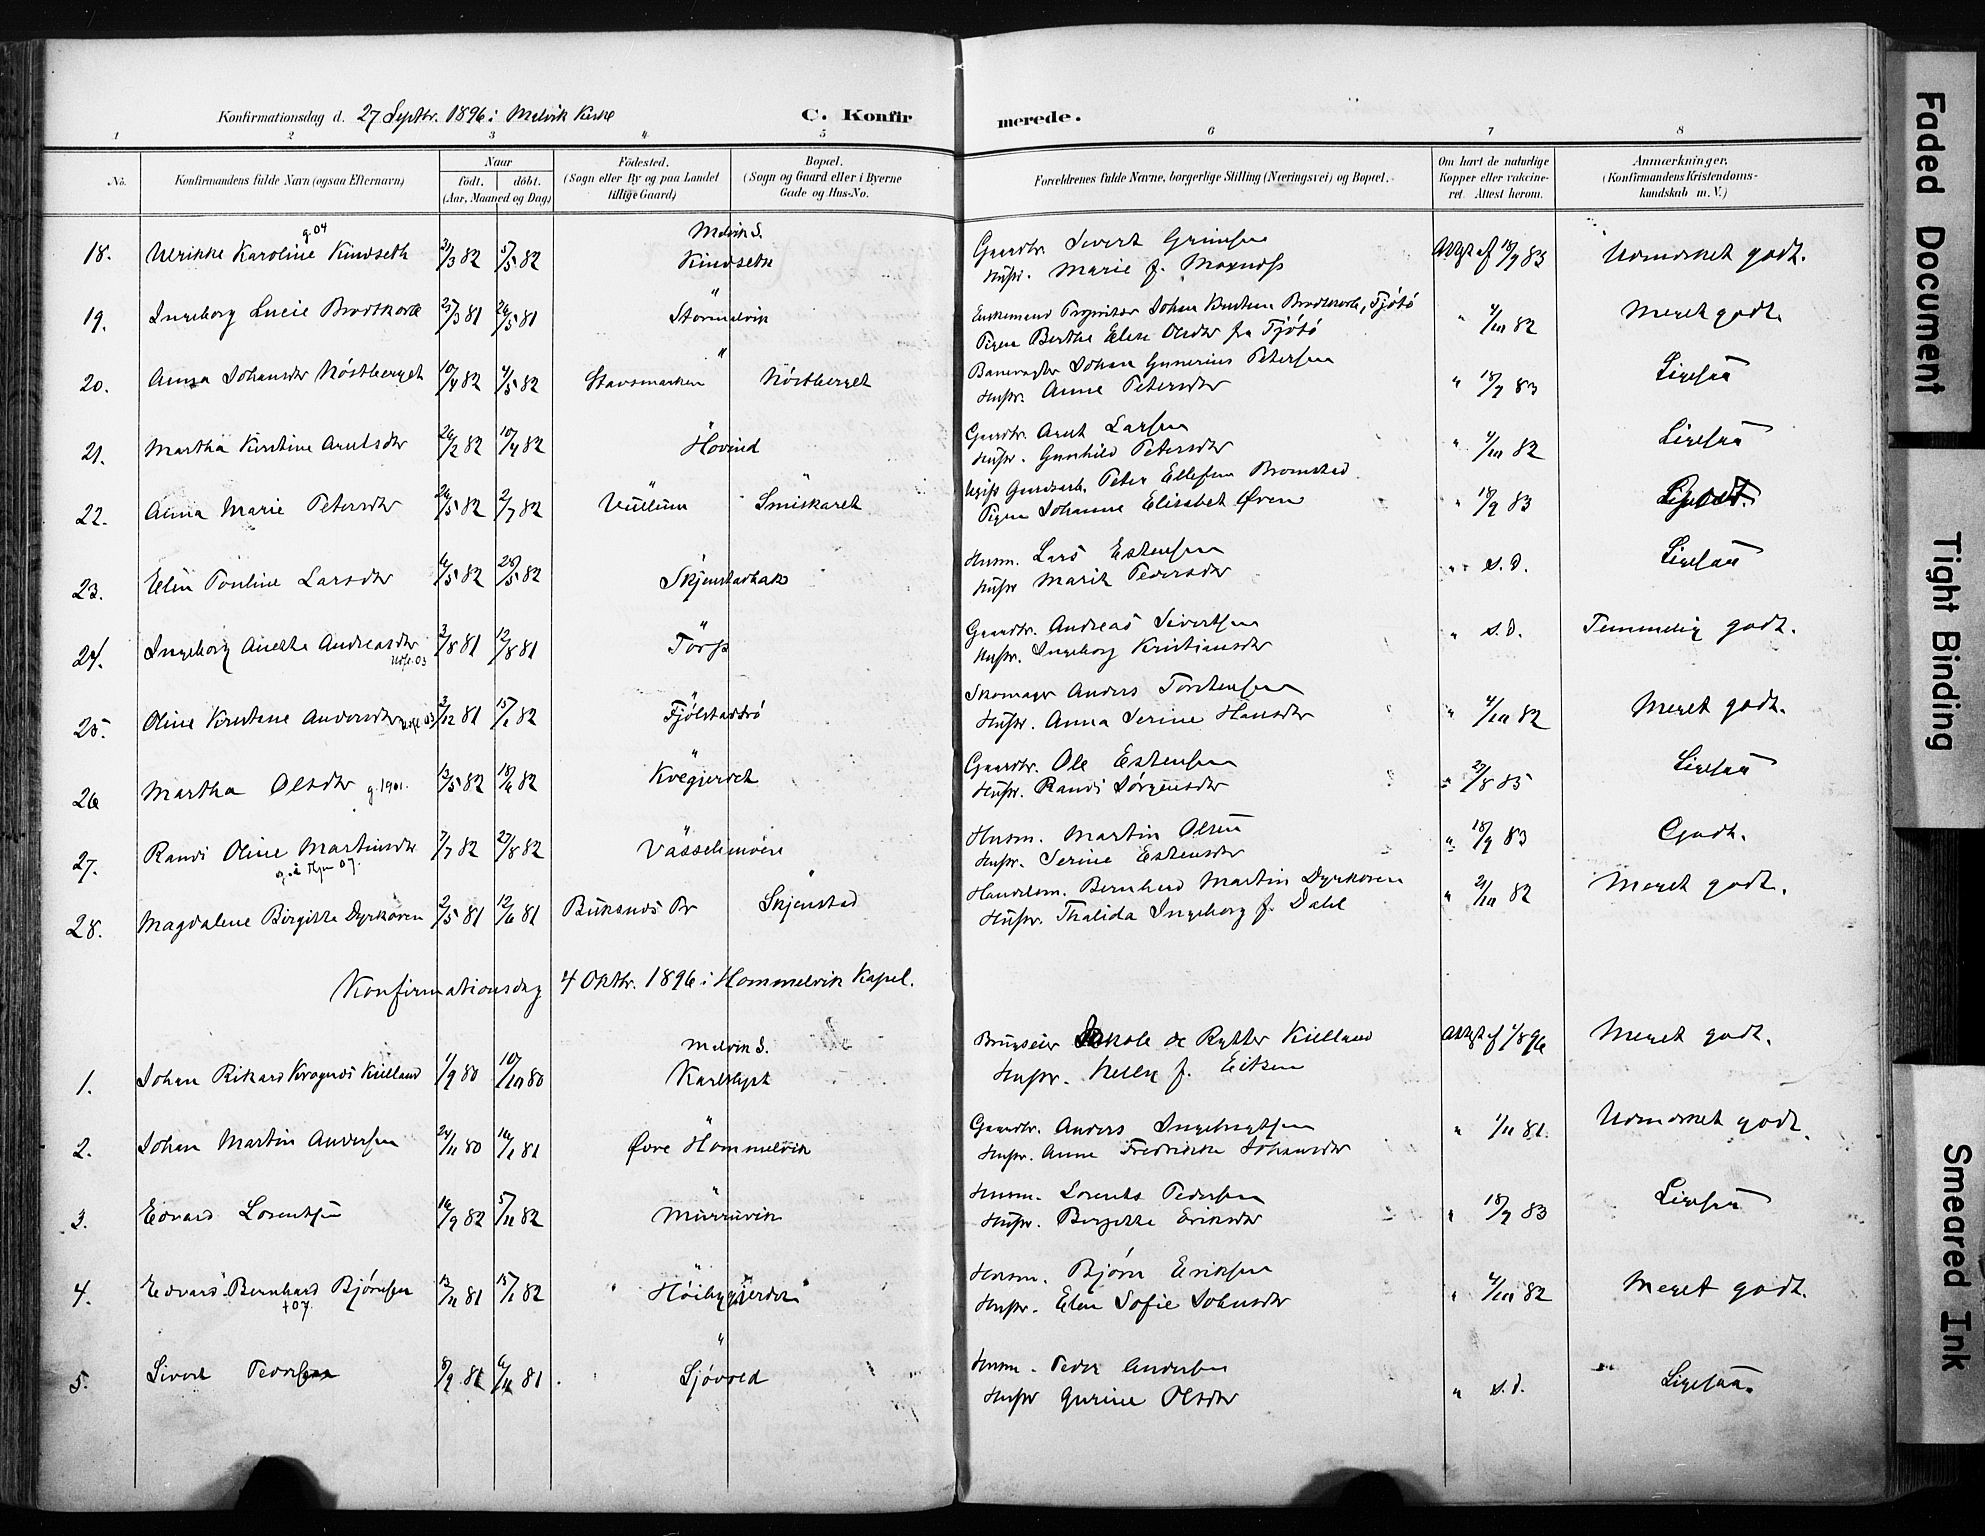 Konfirmationsdag d. 27 Septbr. 1896 i Melvik Kirke
C. Konfirmerede.
1 2 3 4 5 6 7 8
No.
Konfirmandens fulde Navn (ogsaa Efternavn)
Naar
født. døbt.
(Aar, Maaned og Dag)
Fødested.
(Sogn eller By og paa Landet tillige Gaard)
Bopæl.
(Sogn og Gaard eller i Byerne Gade og Hus-No.
Forældrenes fulde Navne, borgerlige Stilling (Næringsvei) og Bopæl.
Om havt de naturlige Kopper eller vaccineret. Attest herom.
Anmærkninger.
(Konfirmandens Kristendomskundskab m. V.)
18. Ulrikke Karoline Kindseth g. 04 31/3 82 17/5 82 Melvik S. Kindseth
Gaardbr. Sivert Grimsen
Hustr. Marie f. Moxness
Attest af 18/9 83 Udmærket godt.
19. Ingeborg Lucie Brodtkorb 25/3 81 26/5 81 " Stormelvik
Enkemand Proprietær Johan Kristian Brodtkorb, Tjötö
Pigen Berthe Elen Olsdtr fra Tjötö
" 4/10 82 Meget godt.
20. Anna Johansdtr Nöstberget 10/4 82 4/5 82 Stavsmarken " Nöstberget
Banevogter Johan Gunerius Petersen
Hustr. Anne Petersdtr
" 18/9 83 Ligesaa
21. Martha Kirstine Arntsdtr 26/2 82 10/4 82 " Hovind
Gaardbr. Arnt Larsen
Hustr. Gunhild Petersdtr
" 4/10 82 Ligesaa
22. Anna Marie Petersdtr 26/5 82 2/7 82 Vullum " Smiskaret
Ugift Gaardarb. Peter Ellefsen Bromstad
Pigen Johanne Elisabet Øren
" 18/9 83 Godt.
23. Elin Pouline Larsdtr 6/5 82 28/5 82 Skjenstadhak
Husm. Lars Estensen
Hustr Marit Pedersdtr
" s.d. Ligesaa
24. Ingeborg Anetta Andreasdtr 3/8 81 12/8 81 " Torp
Gaardbr. Andreas Sivertsen
Hustr. Ingeborg Kristiansdtr
" s.d. Temmelig godt.
25. Oline Kristine Andersdtr 3/12 81 15/1 82 Fjölstadtrö
Skomager Anders Torstensen
Hustr. Anna Serine Hansdtr
" 4/10 82 Meget godt.
26 Martha Olsdtr g. 1901. 13/5 82 18/6 82 " Kvegjerdet
Gaardbr. Ole Estensen
Hustr. Randi Jörgensdtr
" 23/8 85 Ligesaa
27. Randi Oline Martinsdtr 7/7 82 27/8 82 " Vasselienvöie
Husm. Martin Olsen
Hustr. Serine Estensdtr
" 18/9 83 Godt.
28. Magdalene Birgitta Dyrkoren 2/5 81 12/6 81 Buksnes Pr " Skjenstad
Handelsm. Bernhard Martin Dyrkoren
Hustr. Thalida Ingeborg f. Dahl
" 21/10 82 Meget godt.
Konfirmationsdag 4 Oktbr. 1896 i Hommelvik Kapel.
1. Johan Rikard Kragnes Kielland 1/9 80 10/10 80 Melvik S. Karlslyst
Brugseier de Rytter Kielland
Hustr. Helen f. Eitsen
Attest af 1/8 96 Meget godt.
2. Johan Martin Andersen 24/11 80 16/1 81 " Øvre Hommelvik
Gaardbr. Anders Ingebrigtsen
Hustr. Anne Fredrikke Johansdtr
" 1/11 81. Udmærket godt.
3. Edvard Lorentsen 16/9 82 5/11 82 " Murruvik
Husm. Lorents Pedersen
Hustr. Bergitte Eriksdtr
" 18/9 83 Ligesaa
4. Edvard Bernhard Björnsen +07 13/11 81 15/1 82 " Höibygjerdet
Husm. Bjørn Eriksen
Hustr. Elen Sofie Johnsdtr
" 4/10 82 Meget godt.
5. Sivert Pedersen 8/9 81 6/11 81 " Sjöveed
Husm. Peder Andersen
Hustr Gurine Olsdtr
" s.d. Ligesaa.
Faded Document
Tight Binding
Smeared Ink